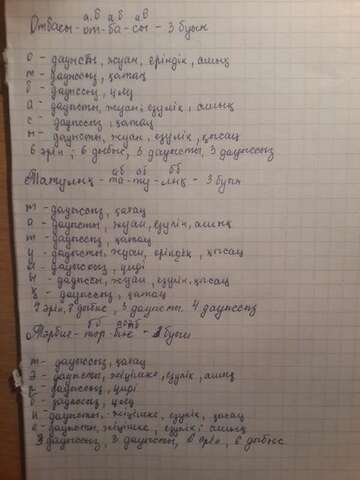 а.б а б а б
Отбасы - от - ба - сы - 3 буын
о - дауысты, жуан, еріндік, ашық
т - дауыссыз, қатаң
б - дауыссыз, ұяң
а - дауысты, жуан, езулік, ашық
с - дауыссыз, қатаң
ы - дауысты, жуан, езулік, қысаң
6 әріп, 6 дыбыс, 3 дауысты, 3 дауыссыз
а б а б б б
Татулық - та - ту - лық - 3 буын
т - дауыссыз, қатаң
а - дауысты, жуан, езулік, ашық
т - дауыссыз, қатаң
у - дауысты, жуан, еріндік, қысаң
л - дауыссыз, үнді
ы - дауысты, жуан, езулік, қысаң
қ - дауыссыз, қатаң
7 әріп, 7 дыбыс, 3 дауысты, 4 дауыссыз
б б
Тәрбие - тәр - бие - буын
т - дауыссыз, қатаң
ә - дауысты, жіңішке, езулік, ашық
р - дауыссыз, үнді
б - дауыссыз, ұяң
и - дауысты, жіңішке, езулік, қысаң
е - дауысты, жіңішке, езулік, ашық
3 дауыссыз, 3 дауысты, 6 әріп, 6 дыбыс